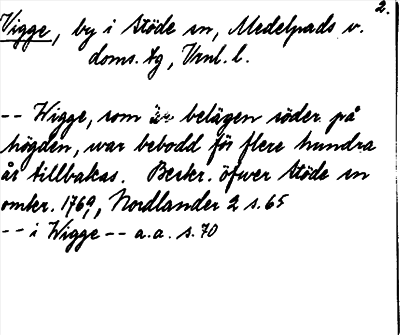 2.
Vigge, by i Stöde sn, Medelpads v.
doms. tg, Vrnl. l.
-- Wigge, som är belägen söder på
högden, war bebodd för flere hundra
år tillbakas. Beskr. öfwer Stöde sn
omkr. 1769, Nordlander 2 s. 65
-- i Wigge -- a.a. s. 70